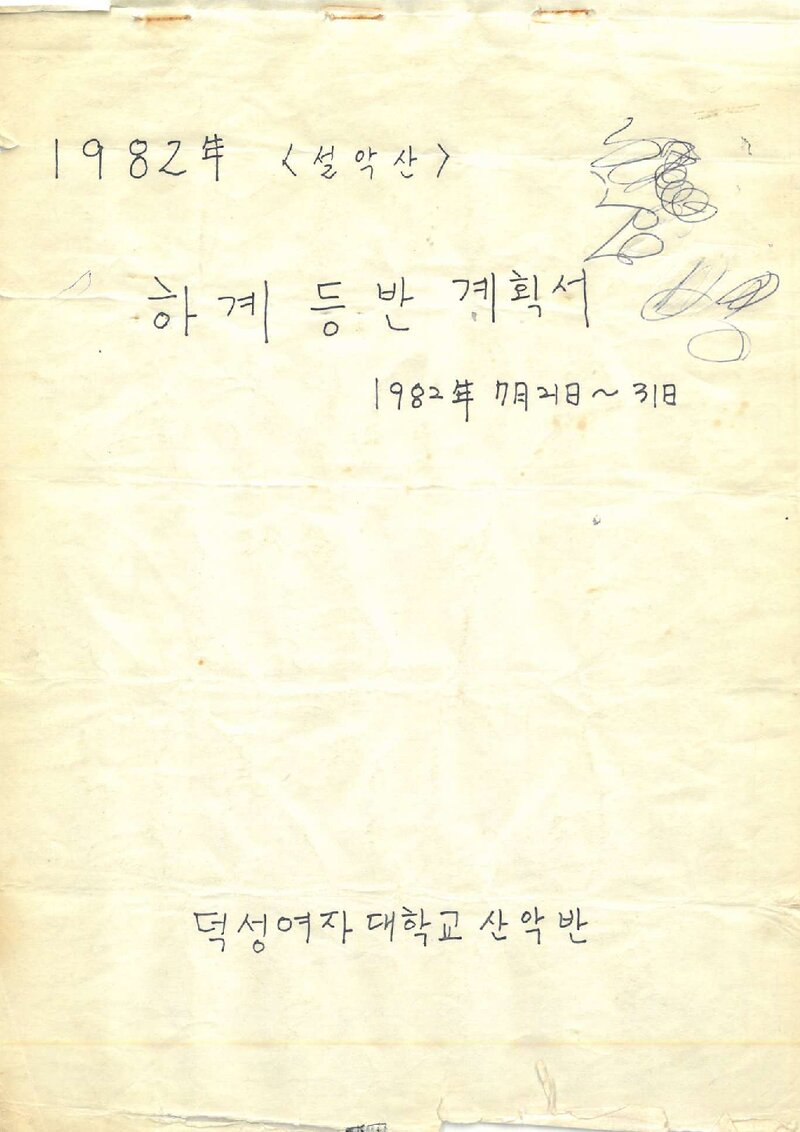 1982年 <설악산>
하계 등반 계획서
1982年 7月 21日 ~ 31日
덕성여자대학교 산악반